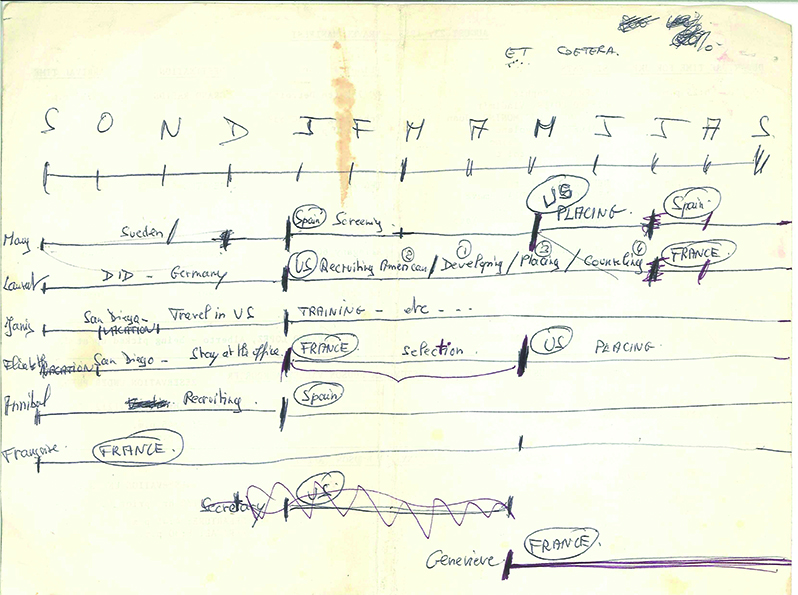 ET COETERA.
S O N D J F M A M J J A S
US
Spain Screening PLACING. Spain
Mary Sweden /
② ① ③ ④
US Recruiting American / Developing / Placing / Counseling FRANCE
Laurent DID - Germany
San Diego - Travel in US TRAINING - etc - - -
Janis VACATION
San Diego - Stay at the office FRANCE Selection. US PLACING.
VACATION
Annibal Recruiting. Spain
Françoise. FRANCE.
Secretary US
Geneviève FRANCE.